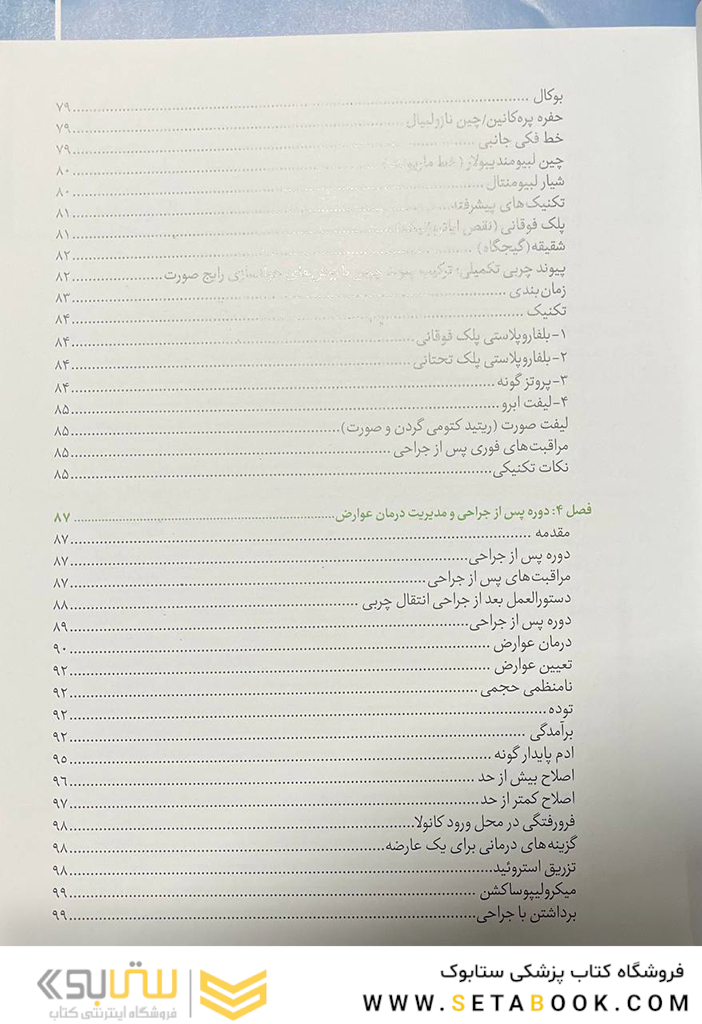 بوکال ........ ۷۹
حفره پره‌کانین/چین نازولبیال ........ ۷۹
خط فکی جانبی ........ ۷۹
چین لبیومندیبولار (خط ........ ۸۰
شیار لبیومنتال ........ ۸۰
تکنیک‌های پیشرفته ........ ۸۱
پلک فوقانی (نقص ........ ۸۱
شقیقه (گیجگاه) ........ ۸۲
پیوند چربی تکمیلی؛ ترکیب پیوند چربی رایج صورت ........ ۸۲
زمان‌بندی ........ ۸۳
تکنیک ........ ۸۴
۱-بلفاروپلاستی پلک فوقانی ........ ۸۴
۲-بلفاروپلاستی پلک تحتانی ........ ۸۴
۳-پروتز گونه ........ ۸۴
۴-لیفت ابرو ........ ۸۵
لیفت صورت (ریتید کتومی گردن و صورت) ........ ۸۵
مراقبت‌های فوری پس از جراحی ........ ۸۵
نکات تکنیکی ........ ۸۵
فصل ۴: دوره پس از جراحی و مدیریت درمان عوارض ........ ۸۷
مقدمه ........ ۸۷
دوره پس از جراحی ........ ۸۷
مراقبت‌های پس از جراحی ........ ۸۷
دستورالعمل بعد از جراحی انتقال چربی ........ ۸۸
دوره پس از جراحی ........ ۸۹
درمان عوارض ........ ۹۰
تعیین عوارض ........ ۹۲
نامنظمی حجمی ........ ۹۲
توده ........ ۹۲
برآمدگی ........ ۹۲
ادم پایدار گونه ........ ۹۵
اصلاح بیش از حد ........ ۹۶
اصلاح کمتر از حد ........ ۹۷
فرورفتگی در محل ورود کانولا ........ ۹۸
گزینه‌های درمانی برای یک عارضه ........ ۹۸
تزریق استروئید ........ ۹۸
میکرولیپوساکشن ........ ۹۹
برداشتن با جراحی ........ ۹۹
فروشگاه کتاب پزشکی ستابوک
WWW.SETABOOK.COM
ستابوک
فروشگاه اینترنتی کتاب